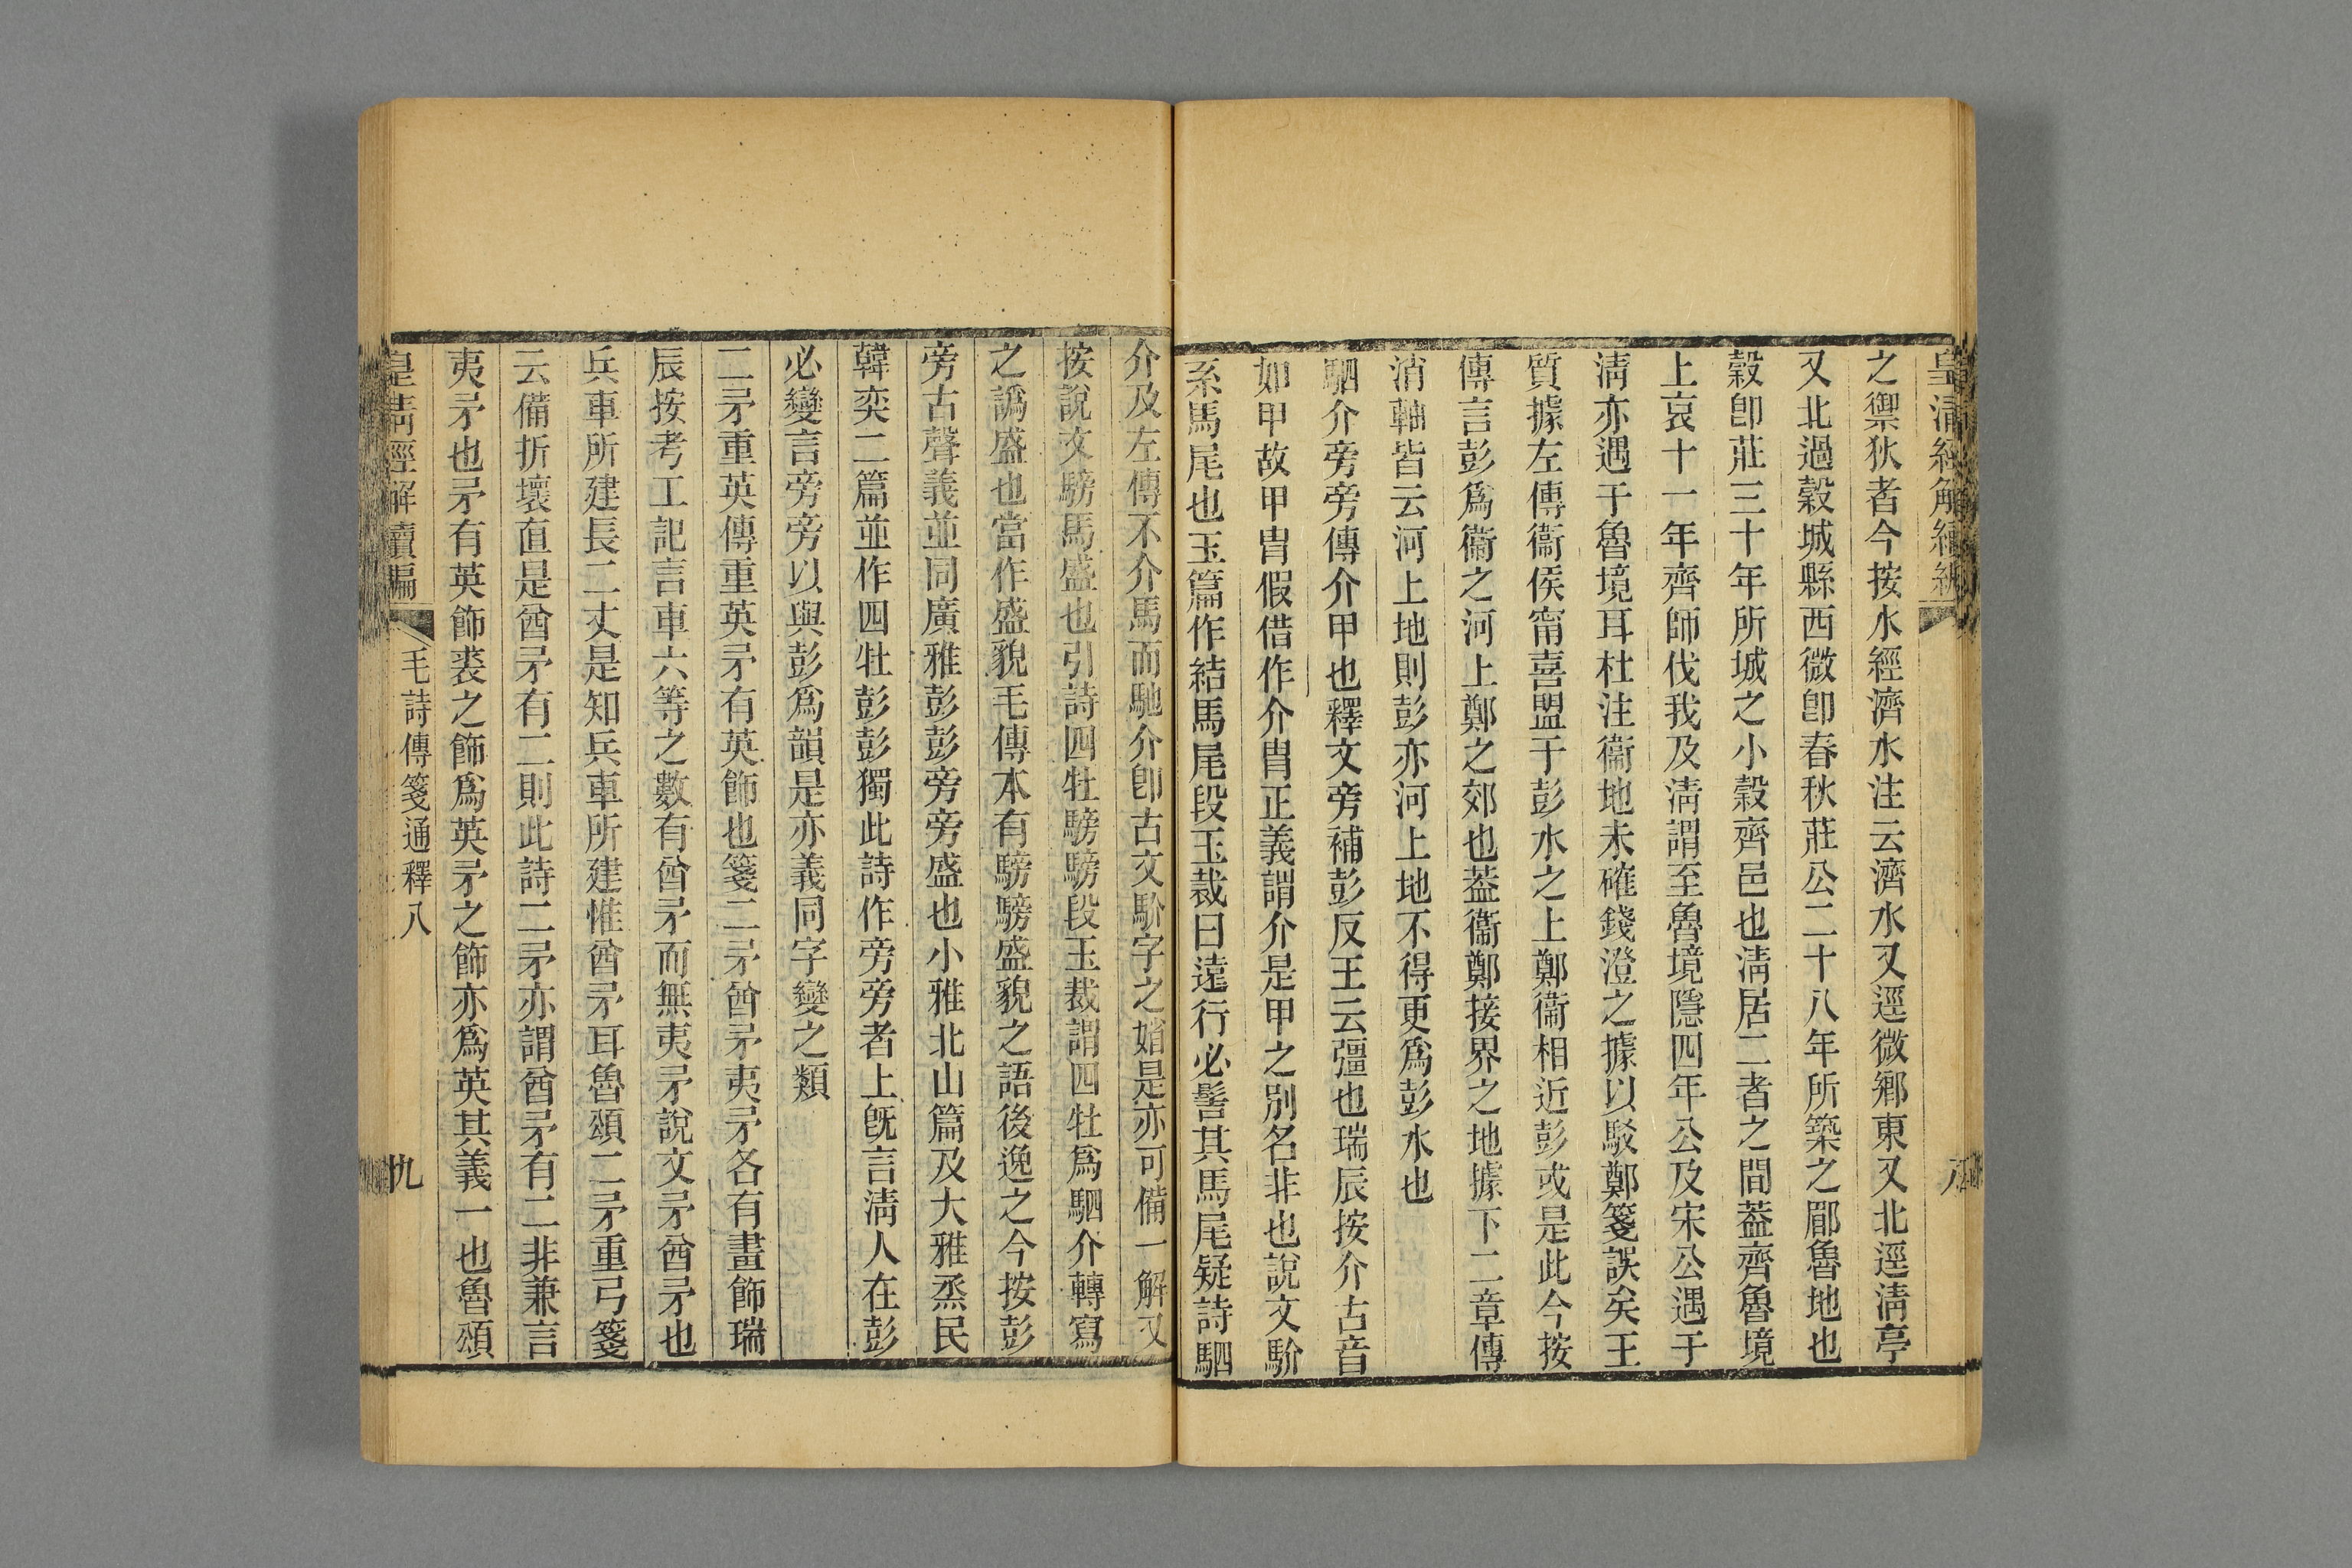 皇清經解續編
八
之禦狄者今按水經濟水注云濟水又逕微鄉東又北逕淸亭
又北過穀城縣西微卽春秋莊公二十八年所築之郿魯地也
穀卽莊三十年所城之小穀齊邑也淸居二者之間葢齊魯境
上哀十一年齊師伐我及淸謂至魯境隱四年公及宋公遇于
淸亦遇于魯境耳杜注衞地未確錢澄之據以駁鄭箋誤矣王
質據左傳衞侯甯喜盟于彭水之上鄭衞相近彭或是此今按
傳言彭爲衞之河上鄭之郊也葢衞鄭接界之地據下二章傳
消軸皆云河上地則彭亦河上地不得更爲彭水也
駟介旁旁傳介甲也釋文旁補彭反王云彊也瑞辰按介古音
如甲故甲冑假借作介冑正義謂介是甲之別名非也說文馻
系馬尾也玉篇作結馬尾段玉裁曰遠行必髻其馬尾疑詩駟
介及左傳不介馬而馳介卽古文馻字之媘是亦可備一解又
按說文騯馬盛也引詩四牡騯騯段玉裁謂四牡爲駟介轉寫
之譌盛也當作盛貌毛傳本有騯騯盛貌之語後逸之今按彭
旁古聲義並同廣雅彭彭旁旁盛也小雅北山篇及大雅烝民
韓奕二篇並作四牡彭彭獨此詩作旁旁者上旣言淸人在彭
必變言旁旁以與彭爲韻是亦義同字變之類
二矛重英傳重英矛有英飾也箋二矛酋矛夷矛各有畫飾瑞
辰按考工記言車六等之數有酋矛而無夷矛說文矛酋矛也
兵車所建長二丈是知兵車所建惟酋矛耳魯頌二矛重弓箋
云備折壞直是酋矛有二則此詩二矛亦謂酋矛有二非兼言
夷矛也矛有英飾裘之飾爲英矛之飾亦爲英其義一也魯頌
皇淸經解續編
毛詩傳箋通釋八
九